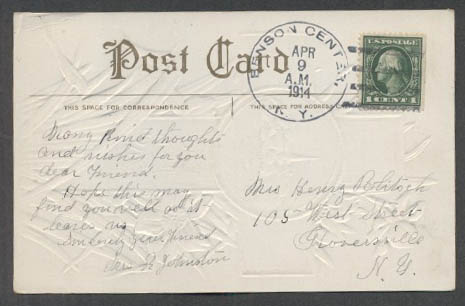 Post Card
BENSON CENTER,
APR
9
A.M.
1914
N. Y.
U.S. POSTAGE
1 CENT 1
THIS SPACE FOR CORRESPONDENCE
THIS SPACE FOR ADDRESS
Many kind thoughts
and wishes for you
dear friend.
Hope this may
find you well as it
leaves us
Sincerely your friend
Johnston
Mrs Henry
105 West Street
Gloversville
N. Y.